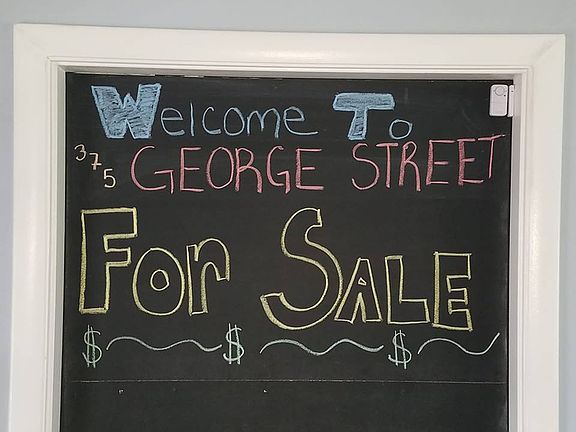 Welcome To
375 GEORGE STREET
For SALE
$ $ $